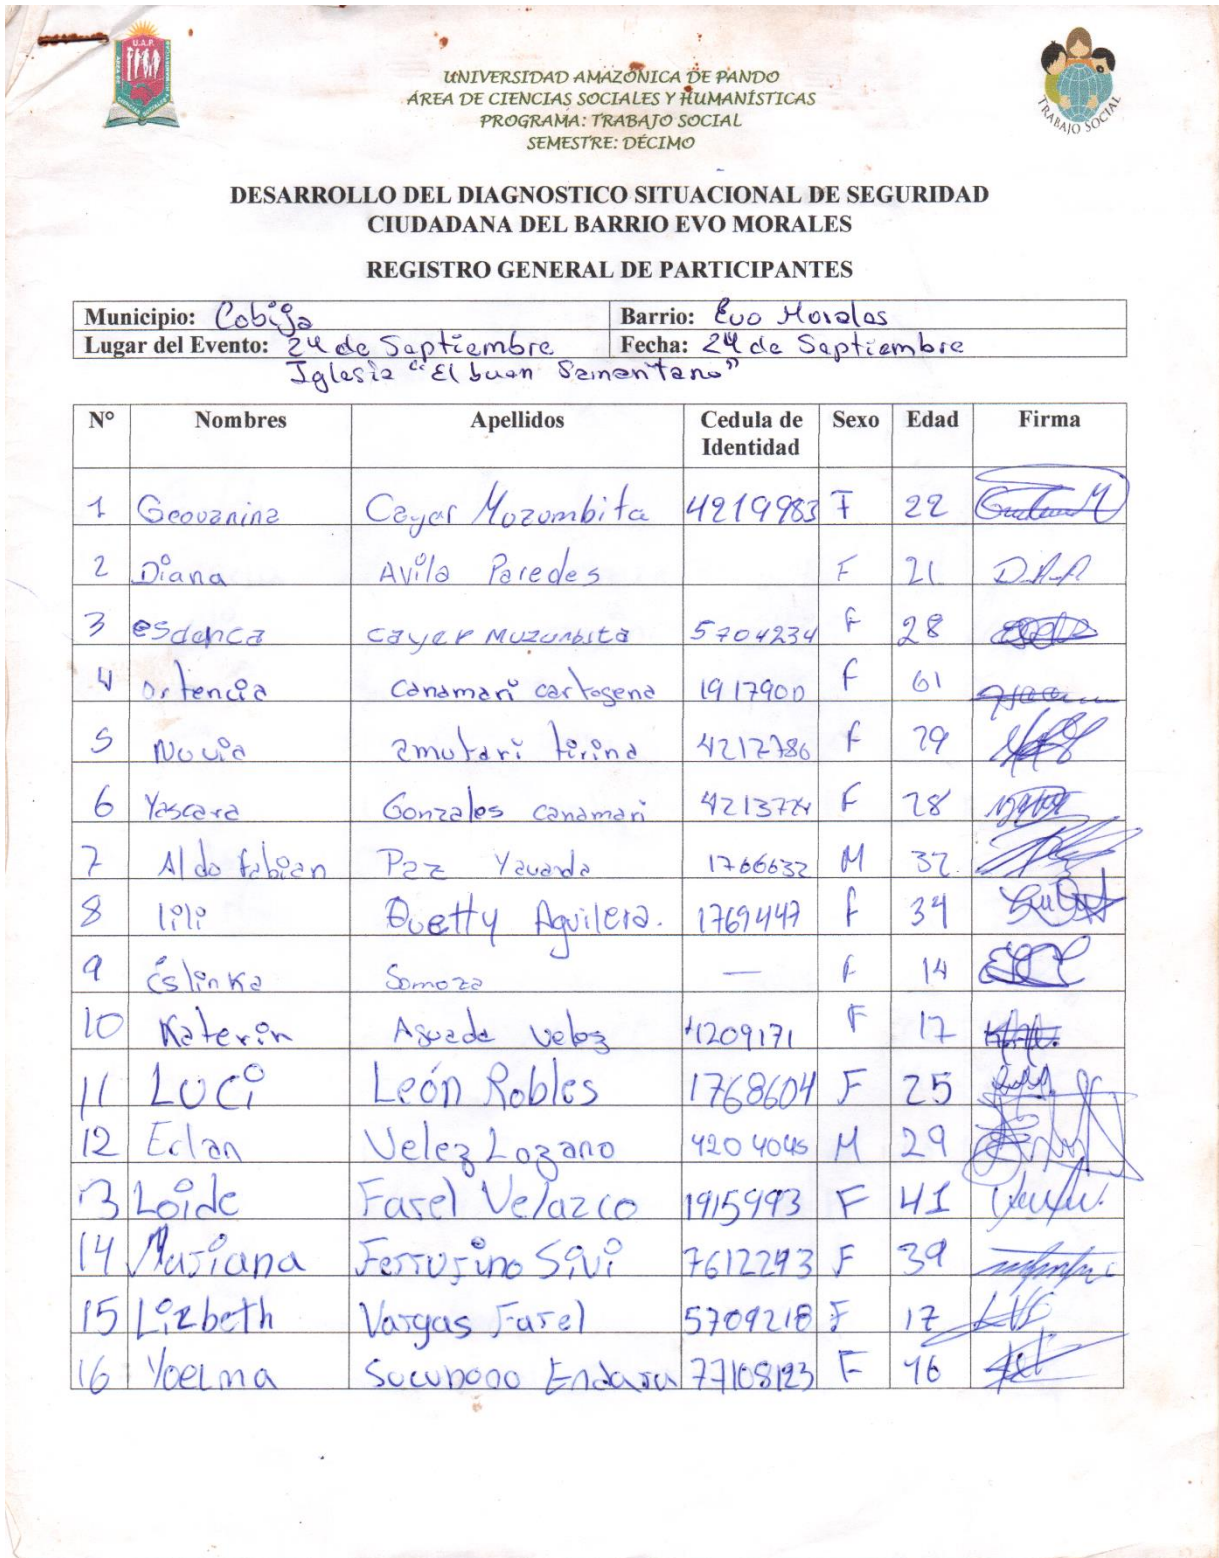 U.A.P.
UNIVERSIDAD AMAZÓNICA DE PANDO
ÁREA DE CIENCIAS SOCIALES Y HUMANÍSTICAS
PROGRAMA: TRABAJO SOCIAL
SEMESTRE: DÉCIMO
TRABAJO SOCIAL
DESARROLLO DEL DIAGNOSTICO SITUACIONAL DE SEGURIDAD
CIUDADANA DEL BARRIO EVO MORALES
REGISTRO GENERAL DE PARTICIPANTES
Municipio: Cobija Barrio: Evo Morales
Lugar del Evento: 24 de Septiembre Fecha: 24 de Septiembre
Iglesia "El buen Samaritano"
N° Nombres Apellidos Cedula de Identidad Sexo Edad Firma
1 Geovanina Cayar Mozombita 4219983 F 22
2 Diana Avila Paredes F 21 D.A.P
3 esdenca cayer Muzunbita 5704234 F 28
4 Ortencia Canamari cartogena 1917900 F 61
5 Novia amutari tirina 4212786 F 29
6 Yascara Gonzales Canamari F 28
7 Aldo fabian Paz 1766632 M 32
8 lili Aguilera. 1769447 f 34
9 Eslinka Somoza — f 14
10 Katerin Aguada Velez 4209171 F 17
11 LUCi León Robles 1768604 F 25
12 Edan Velez Lozano 4204045 M 29
13 Loide Farel Velazco 1915993 F 41
14 Mariana Ferrufino Savi 7612293 F 39
15 Lizbeth Vargas Farel 5709218 F 17 LVF
16 Yoelma Endara 77108123 F 46